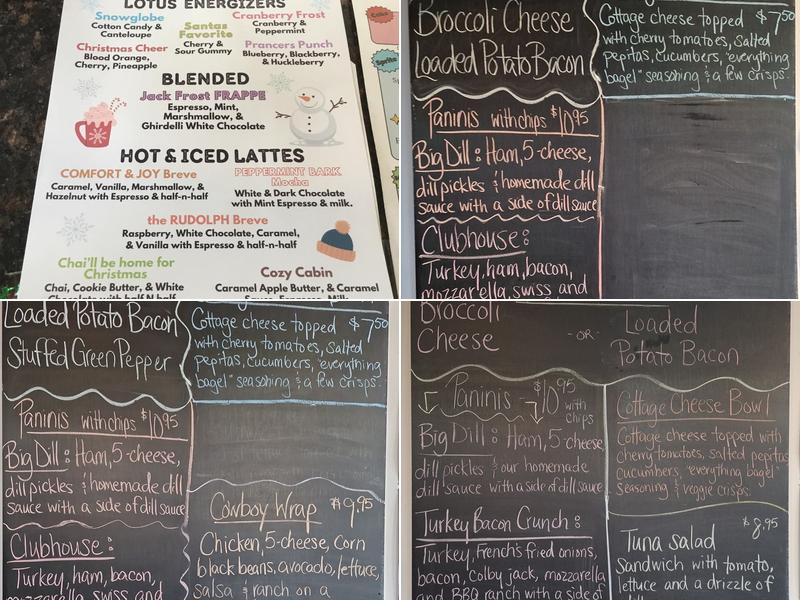 LOTUS ENERGIZERS
Snowglobe
Cotton Candy &
Canteloupe
Santas
Favorite
Cherry &
Sour Gummy
Cranberry Frost
Cranberry &
Peppermint
Christmas Cheer
Blood Orange,
Cherry, Pineapple
Prancers Punch
Blueberry, Blackberry,
& Huckleberry
BLENDED
Jack Frost FRAPPE
Espresso, Mint,
Marshmallow, &
Ghirdelli White Chocolate
HOT & ICED LATTES
COMFORT & JOY Breve
Caramel, Vanilla, Marshmallow, &
Hazelnut with Espresso & half-n-half
PEPPERMINT BARK
Mocha
White & Dark Chocolate
with Mint Espresso & milk.
the RUDOLPH Breve
Raspberry, White Chocolate, Caramel,
& Vanilla with Espresso & half-n-half
Chai'll be home for
Christmas
Chai, Cookie Butter, & White
Chocolate with half N half
Cozy Cabin
Caramel Apple Butter, & Caramel
Sauce, Espresso, Milk
Sprite
Broccoli Cheese
Loaded Potato Bacon
Paninis with chips $10.95
Big Dill: Ham, 5-cheese,
dill pickles & homemade dill
sauce with a side of dill sauce
Clubhouse:
Turkey, ham, bacon,
mozzarella, swiss and
Cottage cheese topped $7.50
with cherry tomatoes, salted
pepitas, cucumbers, "everything
bagel" seasoning & a few crisps.
Loaded Potato Bacon
Stuffed Green Pepper
Paninis with chips $10.95
Big Dill: Ham, 5-cheese,
dill pickles & homemade dill
sauce with a side of dill sauce
Clubhouse:
Turkey, ham, bacon,
mozzarella, swiss and
Cottage cheese topped $7.50
with cherry tomatoes, salted
pepitas, cucumbers, "everything
bagel" seasoning & a few crisps.
Cowboy Wrap $9.95
Chicken, 5-cheese, corn
black beans, avocado, lettuce,
salsa & ranch on a
Broccoli
Cheese
-OR-
Loaded
Potato Bacon
Paninis - $10.95 with
chips
Big Dill: Ham, 5-cheese,
dill pickles & our homemade
dill sauce with a side of dill sauce
Turkey Bacon Crunch:
Turkey, French's fried onions,
bacon, Colby jack, mozzarella
and BBQ ranch with a side of
Cottage Cheese Bowl
Cottage cheese topped with
cherry tomatoes, salted pepitas
cucumbers, "everything bagel"
seasoning & veggie crisps.
Tuna salad $8.95
Sandwich with tomato,
lettuce and a drizzle of